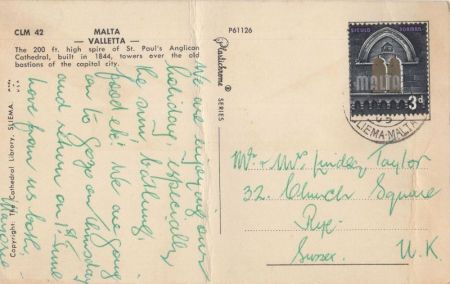 CLM 42
MALTA
— VALLETTA —
The 200 ft. high spire of St. Paul's Anglican
Cathedral, built in 1844, towers over the old
bastions of the capital city.
P61126
Plastichrome ®
SERIES
Copyright: The Cathedral Library, SLIEMA.
SICULO NORMAN
MALTA
3d
SLIEMA-MALTA
We are enjoying our
holiday, especially
the sun, bathing,
food etc! We are going
on to Gozo on Thursday
and return on 1st June
love from us both,
Mr & Mrs Lindsay Taylor
32, Church Square
Rye
Sussex. U.K.